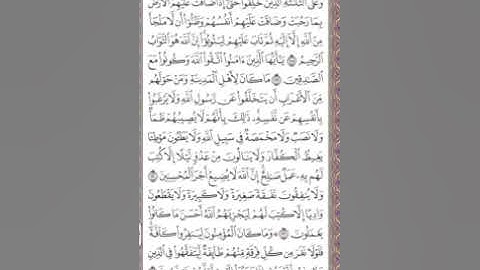 وَعَلَى ٱلثَّلَـٰثَةِ ٱلَّذِينَ خُلِّفُوا۟ حَتَّىٰٓ إِذَا ضَاقَتْ عَلَيْهِمُ ٱلْأَرْضُ
بِمَا رَحُبَتْ وَضَاقَتْ عَلَيْهِمْ أَنفُسُهُمْ وَظَنُّوٓا۟ أَن لَّا مَلْجَأَ
مِنَ ٱللَّهِ إِلَّآ إِلَيْهِ ثُمَّ تَابَ عَلَيْهِمْ لِيَتُوبُوٓا۟ إِنَّ ٱللَّهَ هُوَ ٱلتَّوَّابُ
ٱلرَّحِيمُ ۝ يَـٰٓأَيُّهَا ٱلَّذِينَ ءَامَنُوا۟ ٱتَّقُوا۟ ٱللَّهَ وَكُونُوا۟ مَعَ
ٱلصَّـٰدِقِينَ ۝ مَا كَانَ لِأَهْلِ ٱلْمَدِينَةِ وَمَنْ حَوْلَهُم
مِّنَ ٱلْأَعْرَابِ أَن يَتَخَلَّفُوا۟ عَن رَّسُولِ ٱللَّهِ وَلَا يَرْغَبُوا۟
بِأَنفُسِهِمْ عَن نَّفْسِهِۦ ذَٰلِكَ بِأَنَّهُمْ لَا يُصِيبُهُمْ ظَمَأٌ
وَلَا نَصَبٌ وَلَا مَخْمَصَةٌ فِى سَبِيلِ ٱللَّهِ وَلَا يَطَـُٔونَ مَوْطِئًا
يَغِيظُ ٱلْكُفَّارَ وَلَا يَنَالُونَ مِنْ عَدُوٍّ نَّيْلًا إِلَّا كُتِبَ
لَهُم بِهِۦ عَمَلٌ صَـٰلِحٌ إِنَّ ٱللَّهَ لَا يُضِيعُ أَجْرَ ٱلْمُحْسِنِينَ ۝
وَلَا يُنفِقُونَ نَفَقَةً صَغِيرَةً وَلَا كَبِيرَةً وَلَا يَقْطَعُونَ
وَادِيًا إِلَّا كُتِبَ لَهُمْ لِيَجْزِيَهُمُ ٱللَّهُ أَحْسَنَ مَا كَانُوا۟
يَعْمَلُونَ ۝ وَمَا كَانَ ٱلْمُؤْمِنُونَ لِيَنفِرُوا۟ كَآفَّةً
فَلَوْلَا نَفَرَ مِن كُلِّ فِرْقَةٍ مِّنْهُمْ طَآئِفَةٌ لِّيَتَفَقَّهُوا۟ فِى ٱلدِّينِ